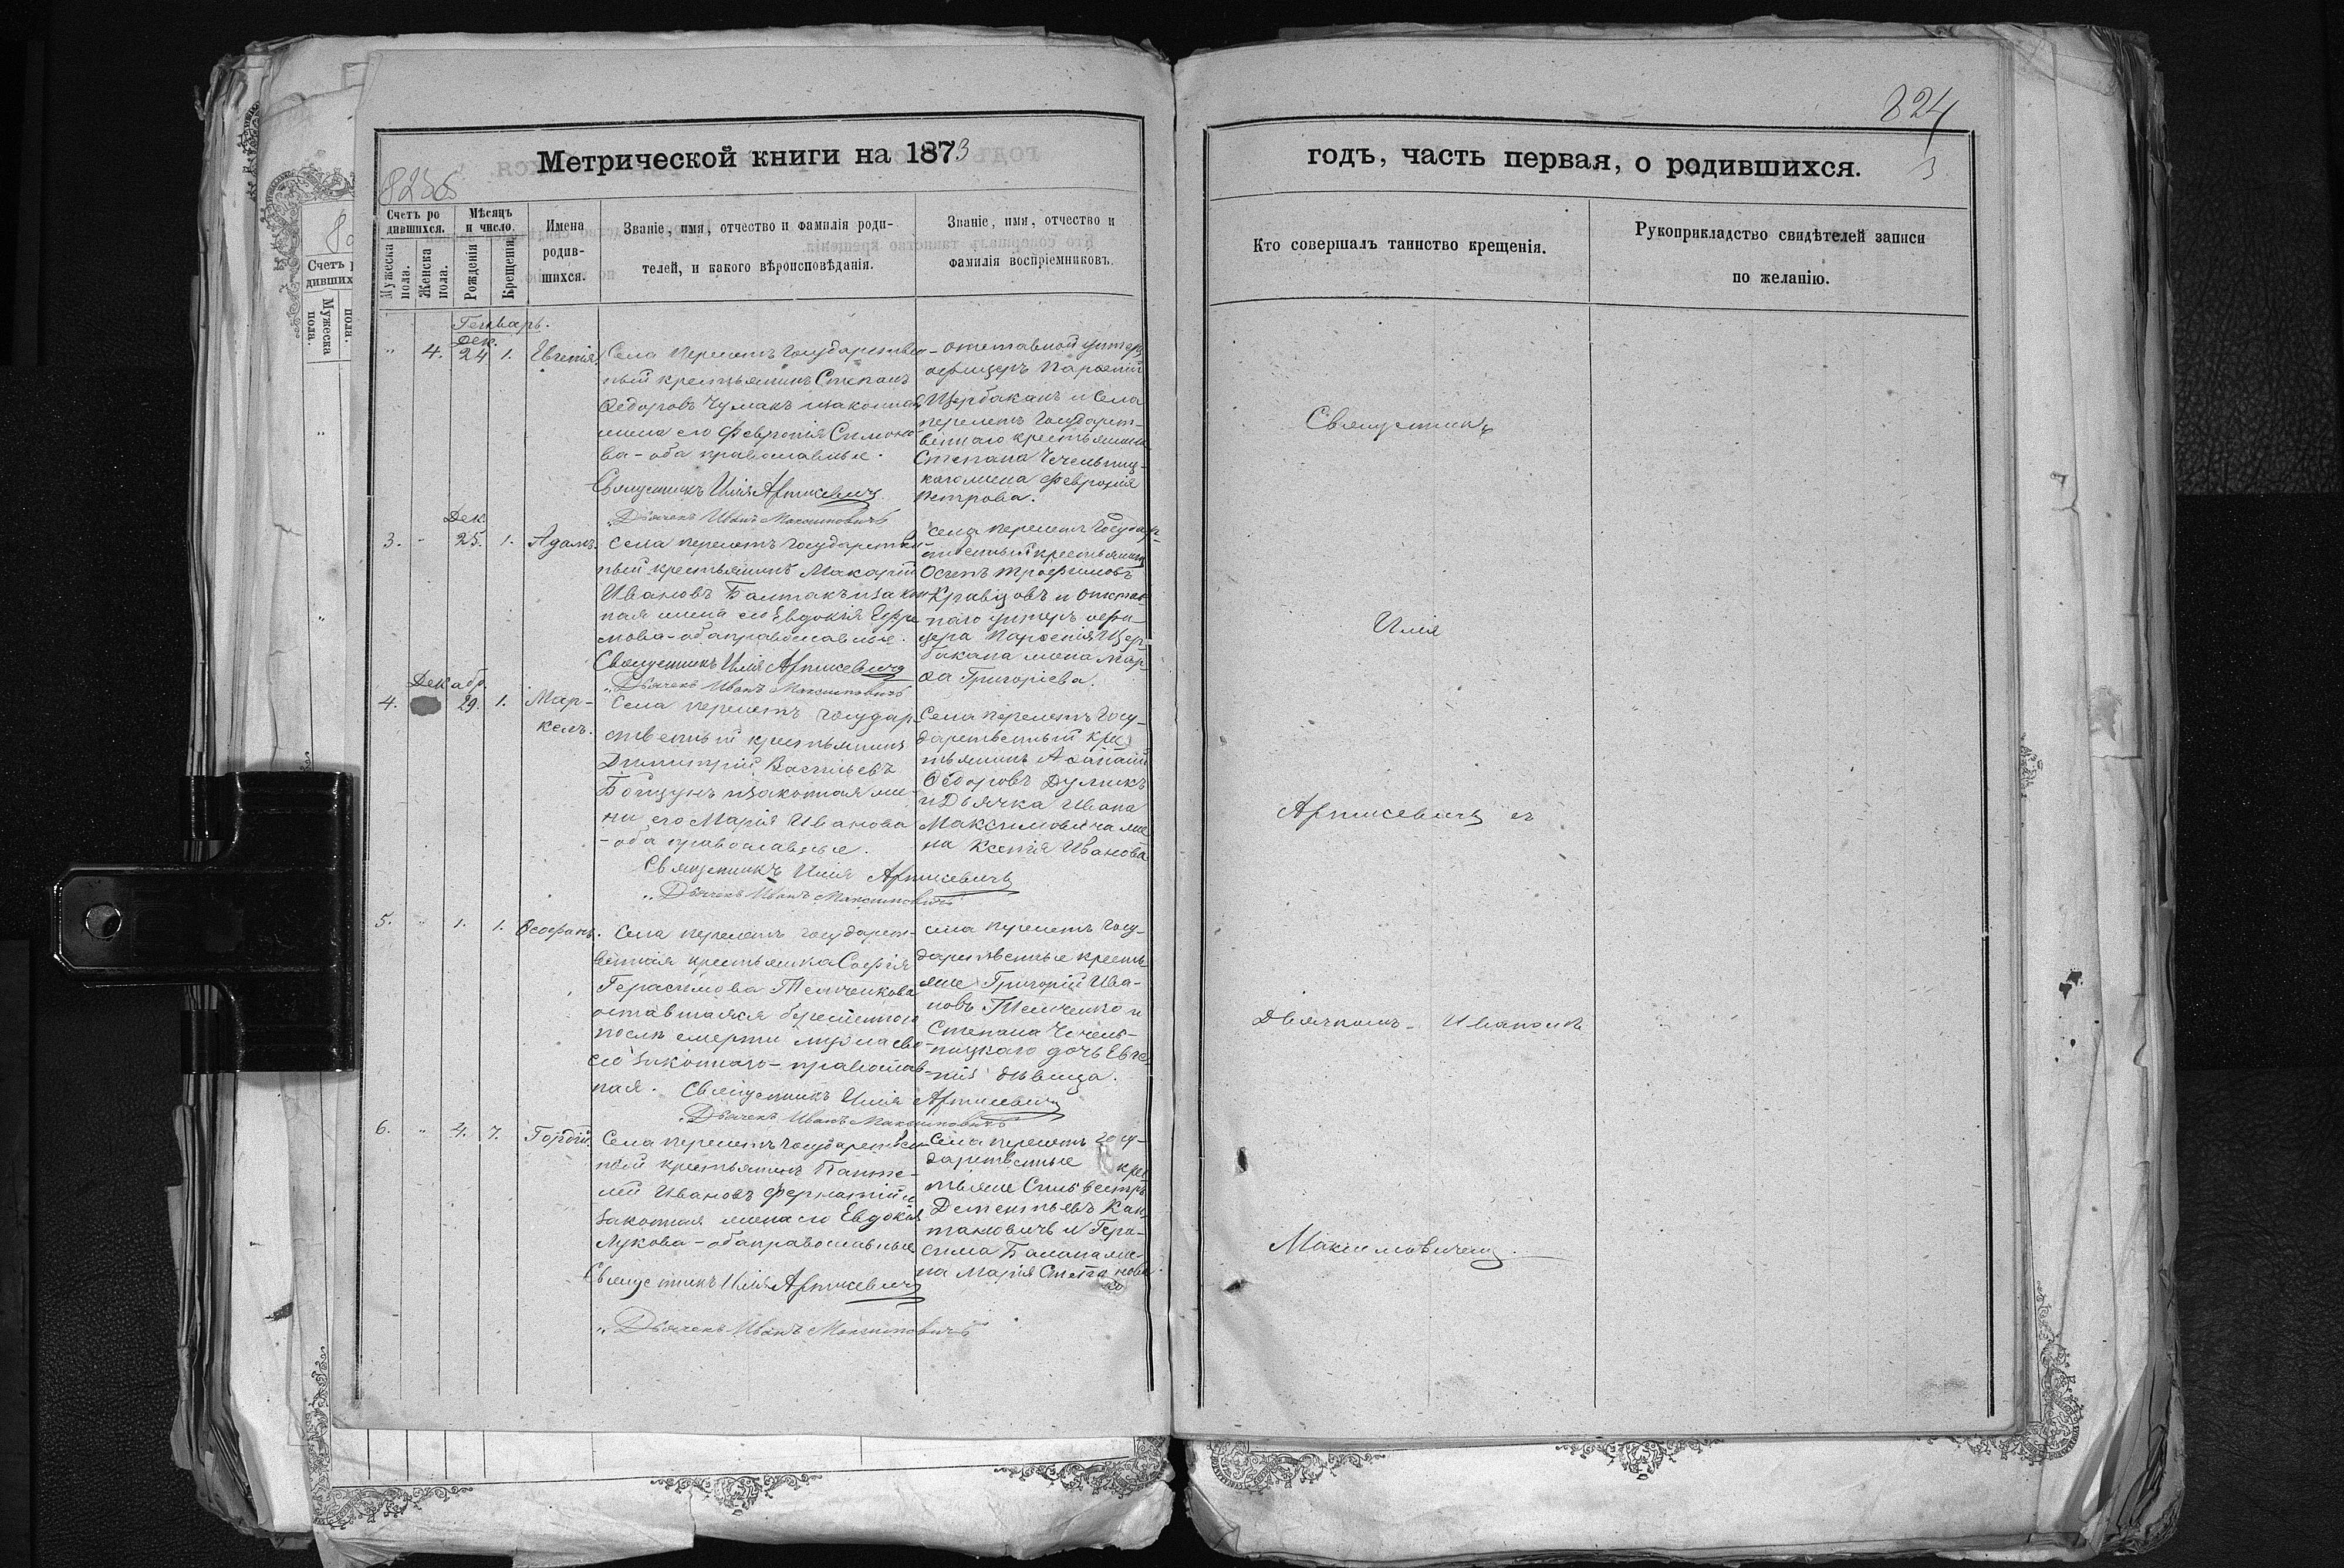 824
Метрической книги на 1873
годъ, часть первая, о родившихся.
3
Счетъ ро
дившихся.
Мѣсяцъ
и число.
Мужеска
пола.
Женска
пола.
Рожденія
Крещенія
Имена
родив-
шихся.
Званіе, имя, отчество и фамилія роди-
телей, и какого вѣроисповѣданія.
Званіе, имя, отчество и
фамилія воспріемниковъ.
Кто совершалъ таинство крещенія.
Рукоприкладство свидѣтелей записи
по желанію.
Генварь.
Дек.
" 4. 24 1. Евгенія
Села Перелетъ Государствен-
ный крестьянинъ Степанъ
Ѳедоровъ Чумакъ изаконная
жена его Февронія Симоно-
ва - оба православные.
Священникъ Илія Артисевичъ
Дьячекъ Иванъ Максимовичъ
отставной унтеръ
офицеръ Парѳеній
Щербаканъ и Села
Перелетъ Государст-
веннаго крестьянина
Степана Чечельниц-
каго жена Февронія
Петрова.
Дек.
3. " 25. 1. Адамъ.
Села Перелетъ Государствен-
ный крестьянинъ Макарій
Ивановъ Балтакъ изакон-
ная жена его Евдокія Ефре-
мова - оба православные.
Священникъ Илія Артисевичъ
"Дьячекъ Иванъ Максимовичъ
Села Перелетъ Государ-
ственный крестьянинъ
Осипъ Трофимовъ
Кравцовъ и отстав-
наго унтеръ офи-
цера Парѳенія Щер-
бакана жена Мар-
ѳа Григоріева.
Декабр.
4. 29. 1. Мар-
келъ.
Села Перелетъ Государ-
ственный крестьянинъ
Димитрій Васильевъ
изаконная же-
на его Марія Иванова
- оба православные.
Священникъ Илія Артисевичъ
"Дьячекъ Иванъ Максимовичъ
Села Перелетъ Госу-
дарственный крес-
тьянинъ Аѳанасій
Ѳедоровъ Думикъ
и Дьячка Ивана
Максимовича же-
на Ксенія Иванова
5. " 1. 1. Ѳеофанъ.
Села Перелетъ Государст-
венная крестьянка Софія
Герасимова Темченкова
оставшаяся беременною
послѣ смерти мужа сво-
его законнаго - православ-
ная. Священникъ Илія Артисевичъ
"Дьячекъ Иванъ Максимовичъ
Села Перелетъ Госу-
дарственные кресть-
яне Григорій Ива-
новъ Темченко и
Степана Чечель-
ницкаго дочь Евге-
нія дѣвица.
6. " 4. 7. Гордій.
Села Перелетъ Государствен-
ный крестьянинъ Панте-
лей Ивановъ и
законная жена его Евдокія
Лукова - оба православные
Священникъ Илія Артисевичъ
"Дьячекъ Иванъ Максимовичъ
Села Перелетъ Госу-
дарственные кре-
стьяне Сильвестръ
Дементьевъ Кан-
тановичъ и Гера-
сима Балана же-
на Марія Степанова.
Священникъ
Илія
Артисевичъ съ
Дьячкомъ Иваномъ
Максимовичемъ.
Счетъ
дивших
Мужеска
пола.
пола.